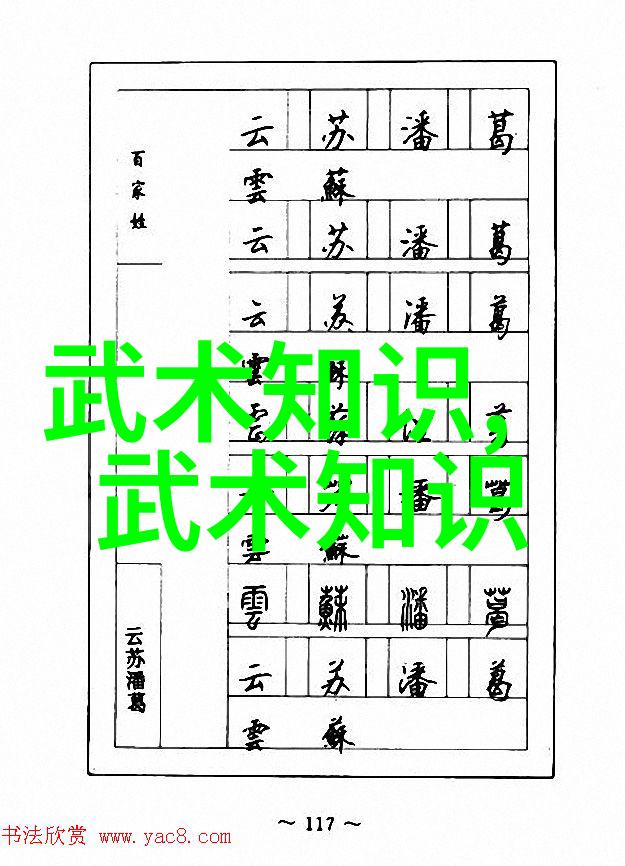 百家姓
云苏潘葛
云 苏 潘 葛
雲 蘇
云 苏 潘 葛
云 苏 潘 葛
雲 蘇
雲
武术知识,
武术知识
潘 葛
雲 蘇
雲 蘇 潘 葛
云 苏 潘 葛
雲 蘇
~ 117 ~
书法欣赏 www.yac8.com